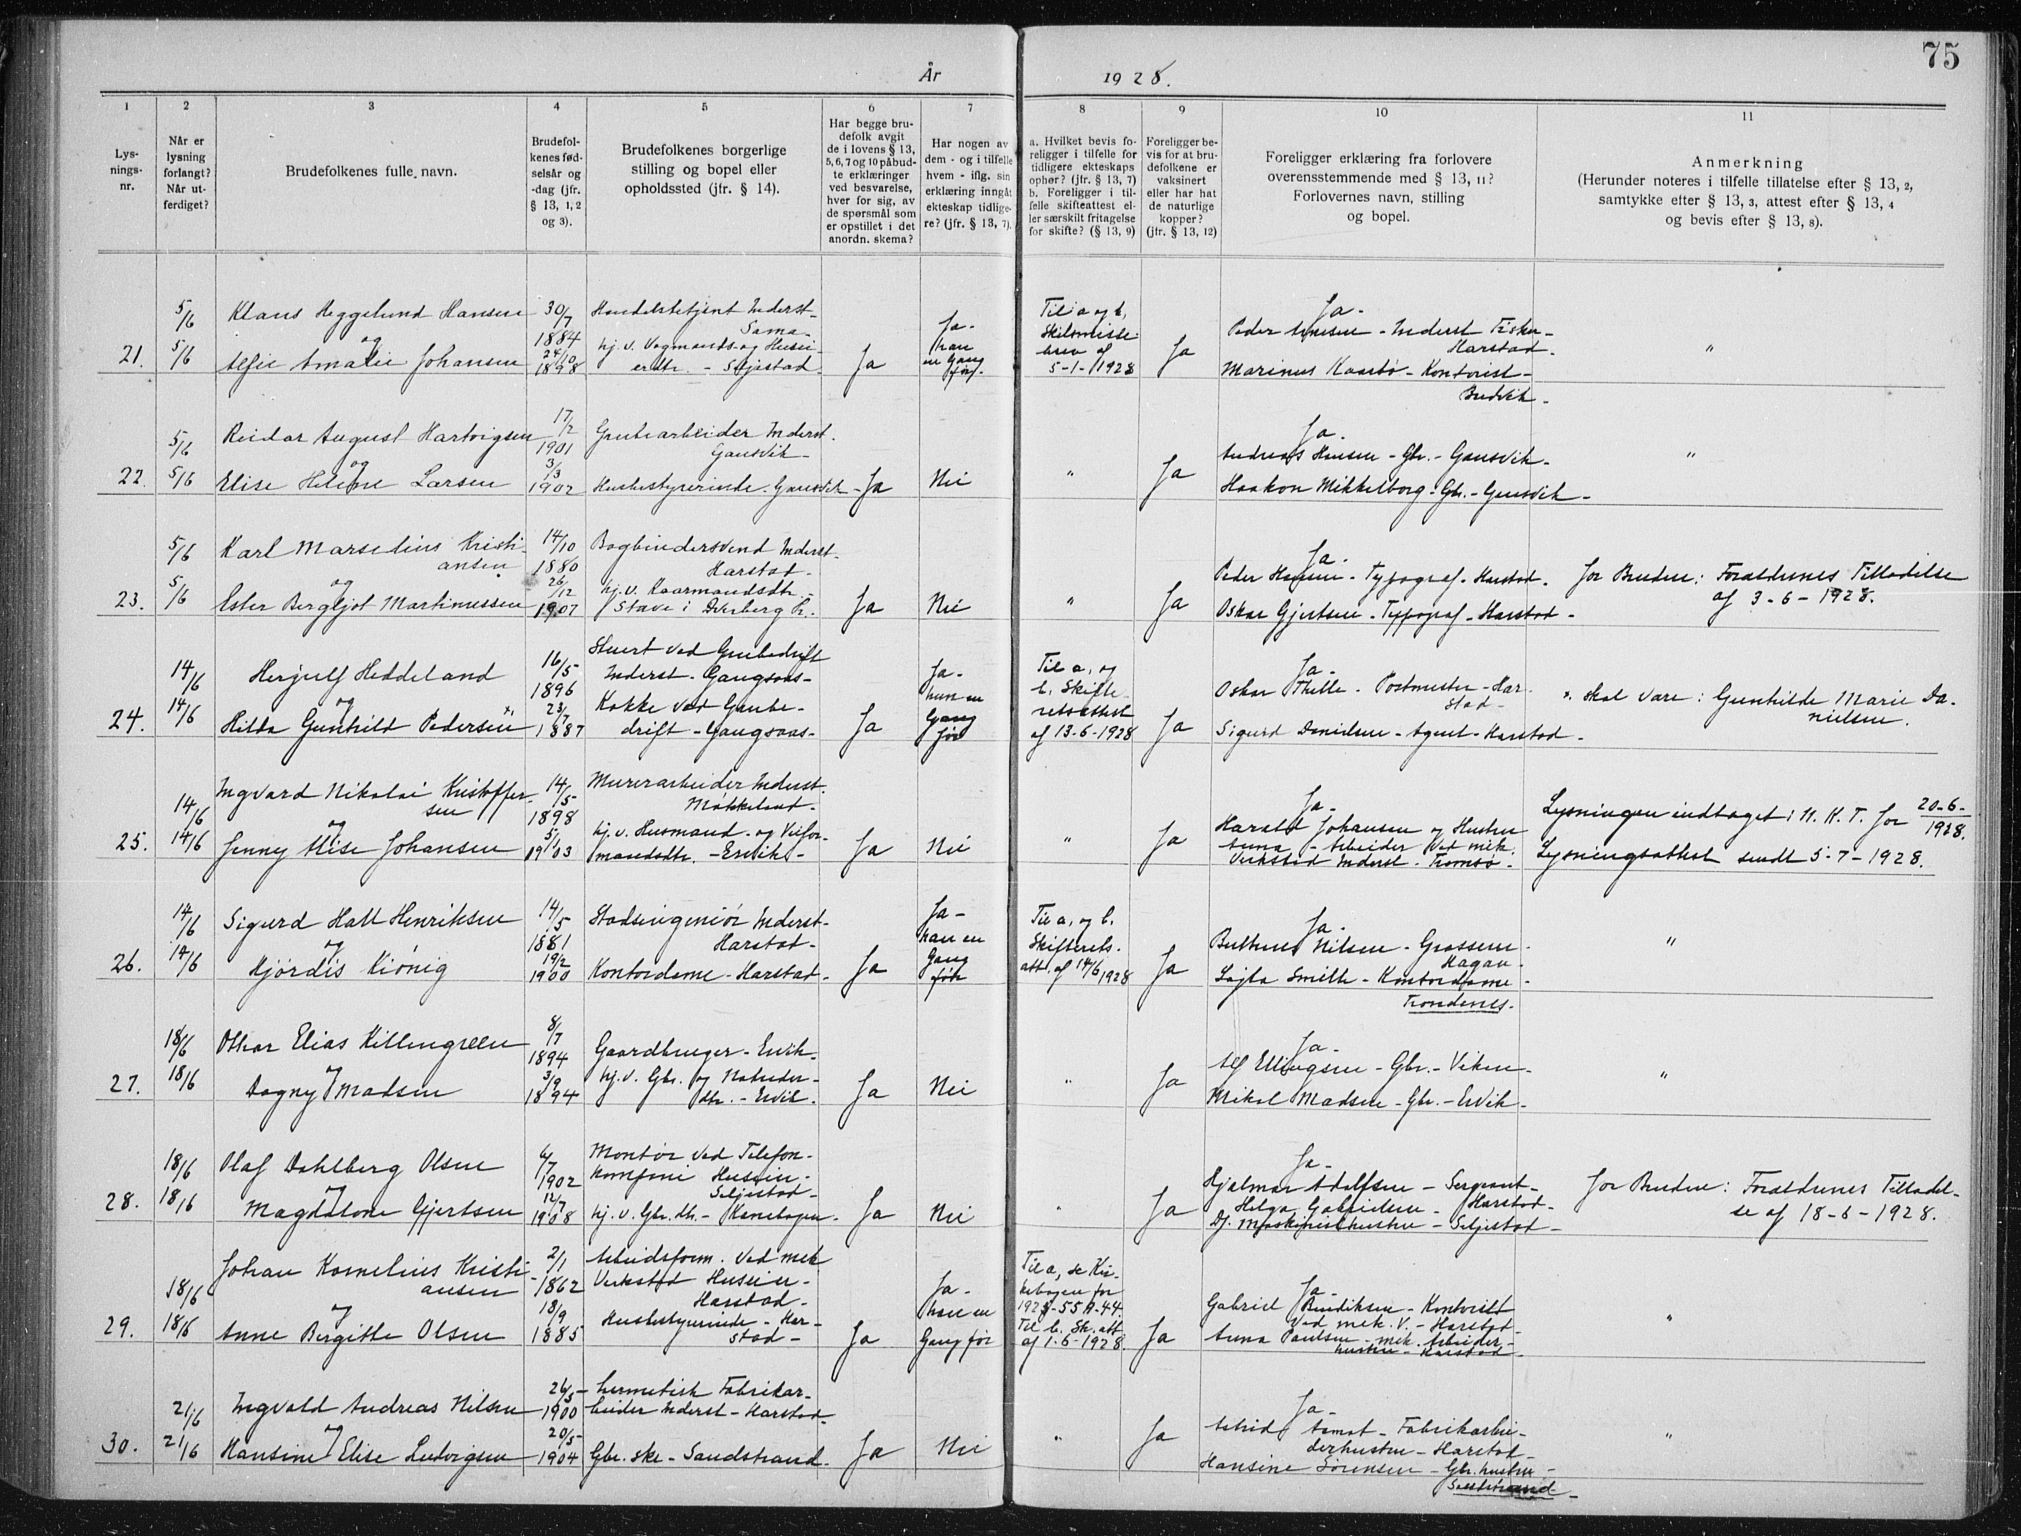 75
År 1928.
1 2 3 4 5 6 7 8 9 10 11
Lys-
nings-
nr.
Når er
lysning
forlangt?
Når ut-
ferdiget?
Brudefolkenes fulle navn.
Brudefol-
kenes fød-
selsår og
-dag (jfr.
§ 13, 1, 2
og 3).
Brudefolkenes borgerlige
stilling og bopel eller
opholdssted (jfr. § 14).
Har begge bru-
defolk avgit
de i lovens § 13,
5, 6, 7 og 10 påbud-
te erklæringer
ved besvarelse,
hver for sig, av
de spørsmål som
er opstillet i det
anordn. skema?
Har nogen av
dem - og i tilfelle
hvem - iflg. sin
erklæring inngåt
ekteskap tidlige-
re? (jfr. § 13, 7).
a. Hvilket bevis fo-
religger i tilfelle for
tidligere ekteskaps
ophør? (jfr. § 13, 7)
b. Foreligger i til-
felle skifteattest el-
ler særskilt fritagelse
for skifte? (§ 13, 9)
Foreligger be-
vis for at bru-
defolkene er
vaksinert
eller har hat
de naturlige
kopper?
(jfr. § 13, 12)
Foreligger erklæring fra forlovere
overensstemmende med § 13, 11?
Forlovernes navn, stilling
og bopel.
Anmerkning
(Herunder noteres i tilfelle tillatelse efter § 13, 2,
samtykke efter § 13, 3, attest efter § 13, 4
og bevis efter § 13, 8).
21.
5/6
5/6
Klaus Heggelund Hansen
og
Alfie Amalie Johansen
30/7
1884
24/10
1898
Handelsbetjent Inderst-
Sama-
hj. v. Vognmands og Husei-
erdtr. - Seljestad-
Ja
Ja-
han
en Gang
før-
Til a og b,
Skilsmisse
brev af
5-1-1928
Ja
Ja-
Peder Arnesen - Inderst Fisker-
Harstad-
Marinus Kaarbø - Kontorist-
Breivik-
"
22.
5/6
5/6
Reidar August Hartvigsen
og
Elise Helene Larsen
17/2
1901
3/3
1902
Grubearbeider Inderst.
Gausvik-
Husbestyrerinde. Gausvik-
Ja
Nei
"
Ja
Ja-
Andreas Hansen - Gbr. - Gausvik-
Haakon Mikkelborg - Gbr. - Gausvik-
"
23.
5/6
5/6
Karl Marselius Kristi-
ansen
og
Ester Bergljot Martinussen
14/10
1880
26/12
1907
Bogbindersvend Inderst-
Harstad-
hj. v. Kaarmandsdtr.-
Stave i Dverberg h.
Ja
Nei
"
Ja
Ja-
Peder Hansen - Typograf - Harstad.
Oskar Gjertsen - Typograf - Harstad-
for Bruden: Forældrenes Tilladelse
af 3-6-1928.
24.
14/6
14/6
Herjulf Heddeland
og
Hilda Gunhild Pedersen x)
16/5
1896
23/7
1887
Stuert ved Grubedrift
Inderst. Gangsaas-
Kokke ved Grube-
drift - Gangsaas-
Ja
Ja-
hun en
Gang
før
Til a, og
b, Skifte-
retsattest
af 13-6-1928
Ja
Ja-
Oskar Thelle. Postmester - Har-
stad-
Sigurd Danielsen - Agent - Harstad-
x. skal være: Gunhilde Marie Da-
nielsen.
25.
14/6
14/6
Ingvard Nikolai Kristoffer-
sen
og
Jenny Alise Johansen
14/5
1898
5/1
1903
Murerarbeider Inderst.
Møkkeland-
hj. v. Husmand- og Veifor-
mandsdtr. - Ervik-
Ja
Nei
"
Ja
Ja-
Harald Johansen og Hustru
Anna - Arbeider ved mek.
Verksted Inderst. Tromsø-
Lysningen indtaget i N. K. T. for 20-6-1928.
Lysningsattest sendt 5-7-1928.
26.
14/6
14/6
Sigurd Hall Henriksen
og
Hjørdis Kiønig
14/5
1881
19/2
1900
Stadsingeniør Inderst-
Harstad-
Kontordame - Harstad-
Ja
Ja-
han en
Gang
før
Til a, og b.
Skifterets-
att. af 14/6 1928
Ja
Ja-
Nilsen -
Hagan-
Smith - Kontordame-
Trondenes-
"
27.
18/6
18/6
Othar Elias Killengreen
og
Dagny Madsen
8/7
1894
3/9
1894
Gaardbruger - Ervik-
hj. v. Gbr. og Noteder-
dtr. - Ervik.
Ja
Nei
"
Ja
Ja-
Alf Ellingsen - Gbr. - Viken-
Mikal Madsen - Gbr. - Ervik-
"
28.
18/6
18/6
Olaf Dahlberg Olsen
og
Magdalone Gjertsen
6/7
1902
12/7
1908
Montør ved Telefon-
kompani Huseier-
Seljestad-
hj. v. Gbr. dtr. - Kanebogen.
Ja
Nei
"
Ja
Ja-
Hjalmar Adolfsen - Sergeant-
Harstad-
Helga Gabrielsen -
D/. Maskinisthustru - Seljestad-
for Bruden: Forældrenes Tilladel-
se af 18-6-1928.
29.
18/6
18/6
Johan Kornelius Kristi-
ansen
og
Anne Bergitte Olsen
2/1
1862
18/9
1885
Arbeidsform. ved mek
Verksted Huseier-
Harstad-
Husbestyrerinde - Har-
stad-
Ja
Ja-
han en
Gang før
Til a, se Kir-
kebogen for
192 - 55 N-44.
Til b. Sk. att
af 1-6-1928.
Ja
Ja-
Gabriel Bendiksen - Kontorist
ved mek. V. - Harstad-
Anna Paulsen - mek. Arbeider-
hustru - Harstad-
"
30.
21/6
21/6
Ingvald Andreas Nilsen
og
Hansine Elise Ludvigsen
26/5-
1900
20/5-
1904
hermetisk Fabrikar-
beider Inderst - Harstad-
Gbr. ske - Sandstrand.
Ja
Nei
"
Ja
Ja-
Astrid Aamot - Fabrikarbei-
derhustru - Harstad-
Hansine Sørensen - Gbr. hustru-
Sandstrand-
"